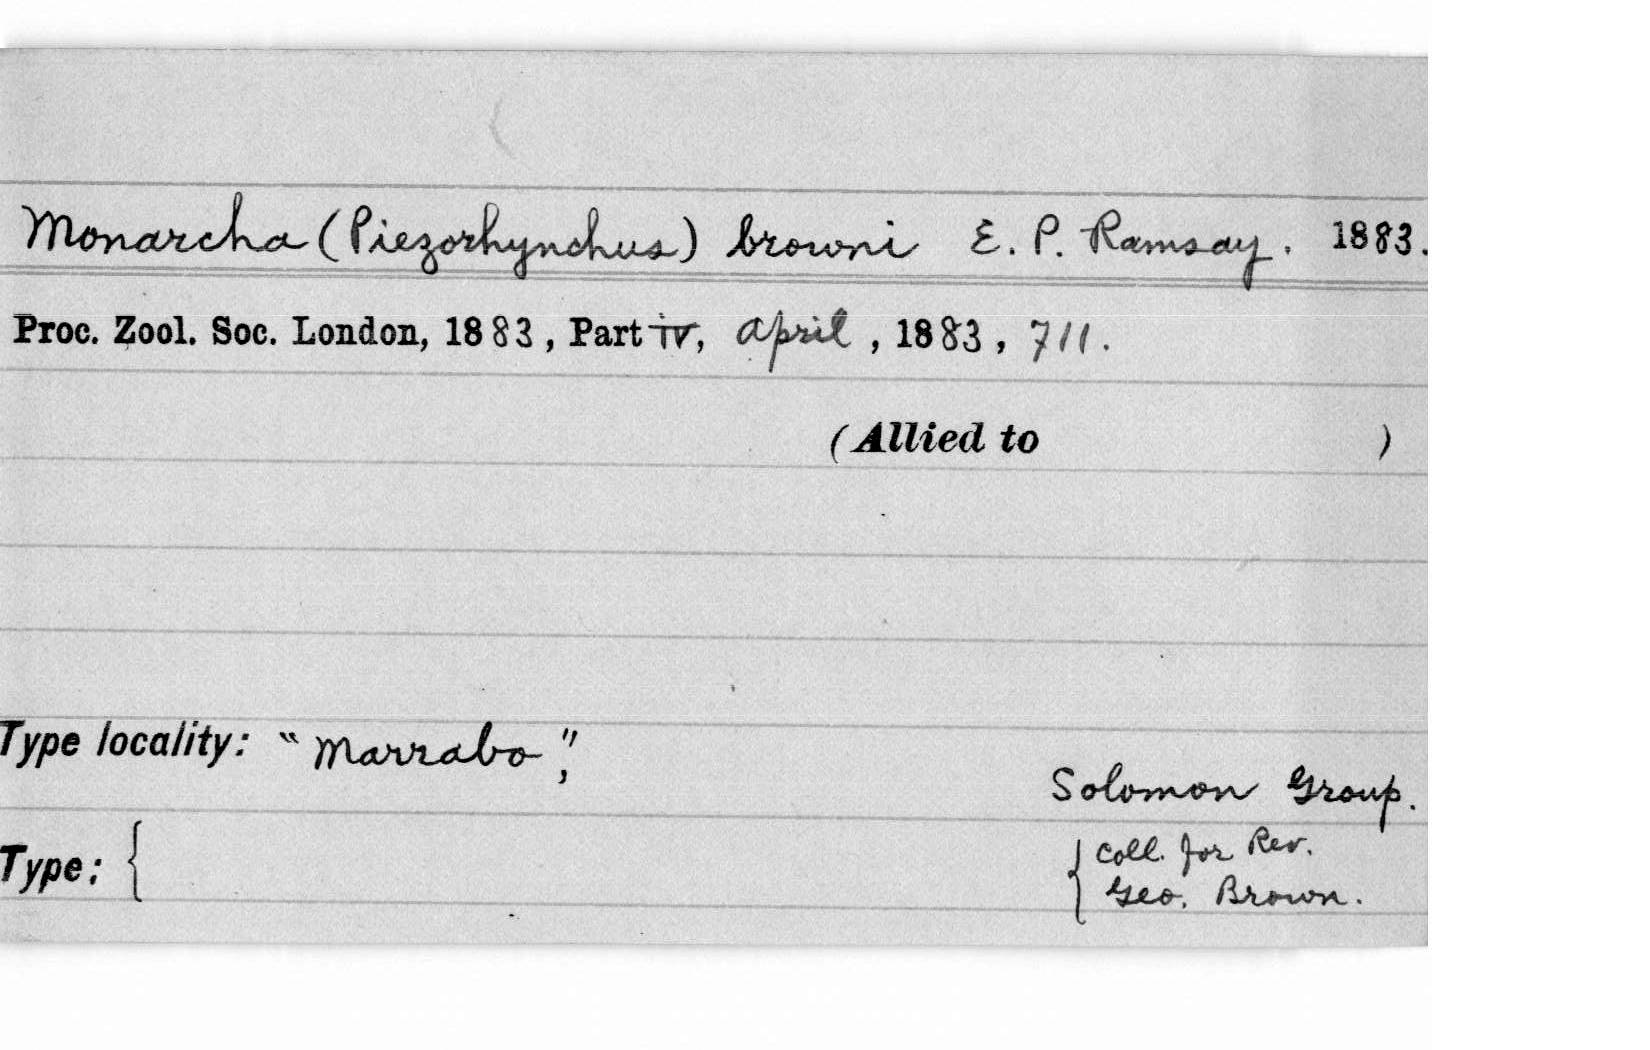 Monarcha (Piezorhynchus) browni E. P. Ramsay. 1883.
Proc. Zool. Soc. London, 1883, Part iv, april, 1883, 711.
(Allied to )
Type locality: "Marrabo",
Solomon Group.
Type: { { Coll. for Rev.
Geo. Brown.